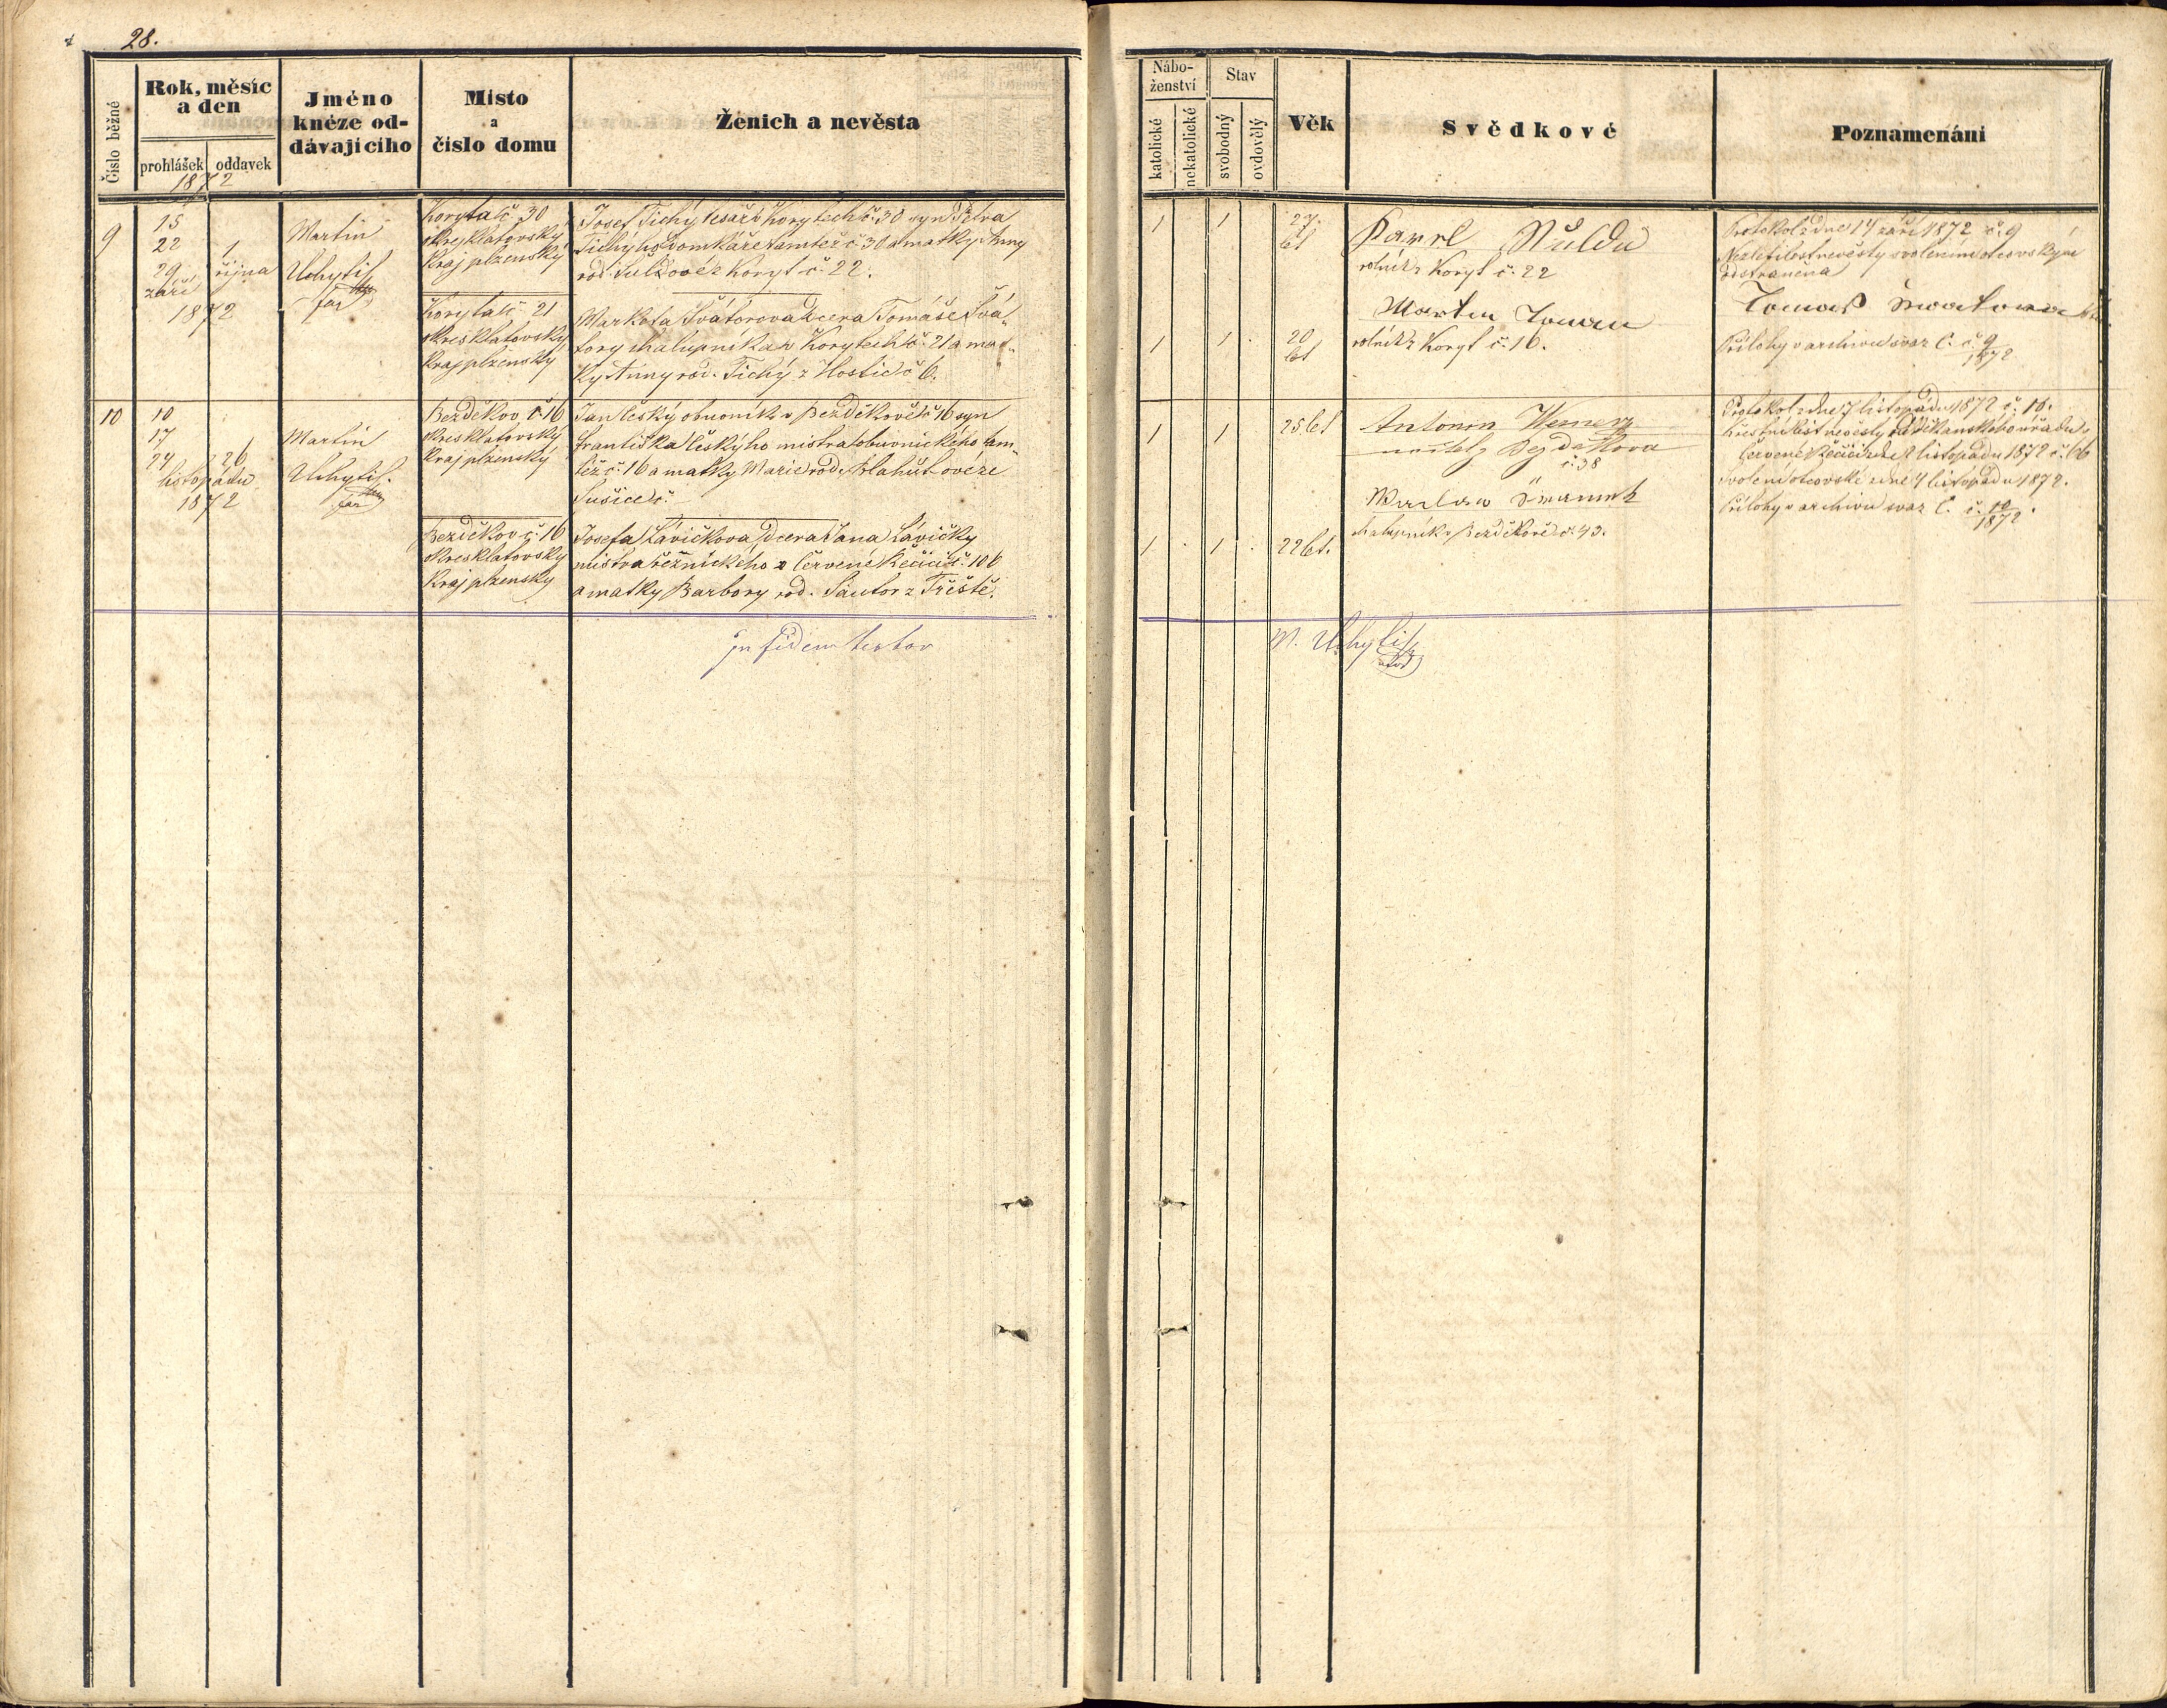 28.
Číslo běžné
Rok, měsíc
a den
prohlášek
oddavek
1872
Jméno
kněze od-
dávajícího
Místo
a
číslo domu
Ženich a nevěsta
Nábo-
ženství
katolické
nekatolické
Stav
svobodný
ovdovělý
Věk
Svědkové
Poznamenání
9
15
22
29
září
1872
1.
října
Martin
Uchytil
far
Koryta č. 30
okres klatovský
Kraj plzenský
Josef Tichý tesař v Korytech č. 30 syn Petra
Tichýho domkáře tamtéž č. 30 a matky Anny
rod. z Koryt č. 22.
Koryta č. 21
okres klatovský
Kraj plzenský
Markéta Svátorova dcera Tomáše Svá-
tory chalupníka z Korytech č. 21 a mat-
ky Anny roz. Tichý z Hostic č 6.
1
1
27
let
Pavel
rolník z Koryt č. 22
Martin Toman
rolník z Koryt č. 16.
1
1
20
let
Protokol z dne 14 září 1872 č. 9
Nezletilost nevěsty svolením otcovským
odstraněna
Tomáš Swatora
Přílohy v archivu svaz C. č. 9/1872
10
10
17
24
listopadu
1872
26
Martin
Uchytil.
far
Bezděkov č. 16
okres klatovský
Kraj plzenský
Jan Český obuvník v Bezděkově č. 16 syn
Františka Českýho mistra obuvnického tam-
též č. 16 a matky Marie rod. ze
Sušice č.
Bezděkov č. 16
okres klatovský
Kraj plzenský
Josefa Lavičkova dcera Jana Lavičky
mistra řeznického z Červené Řečice č. 106
a matky Barbory rod. Šautor z Třeště.
1
1
25 let
Antonín Werner
učitel z Bezděkova
č. 38
Chalupník v Bezděkově č. 43.
1
1
22 let.
Protokol z dne 7 listopadu 1872 č. 10.
Křestní list nevěsty od děkanského úřadu
Červené Řečice z dne listopadu 1872 č. 66
Svolení otcovské z dne 4 listopadu 1872.
Přílohy v archivu svaz C. č. 10/1872.
In fidem testor
M. Uchytil